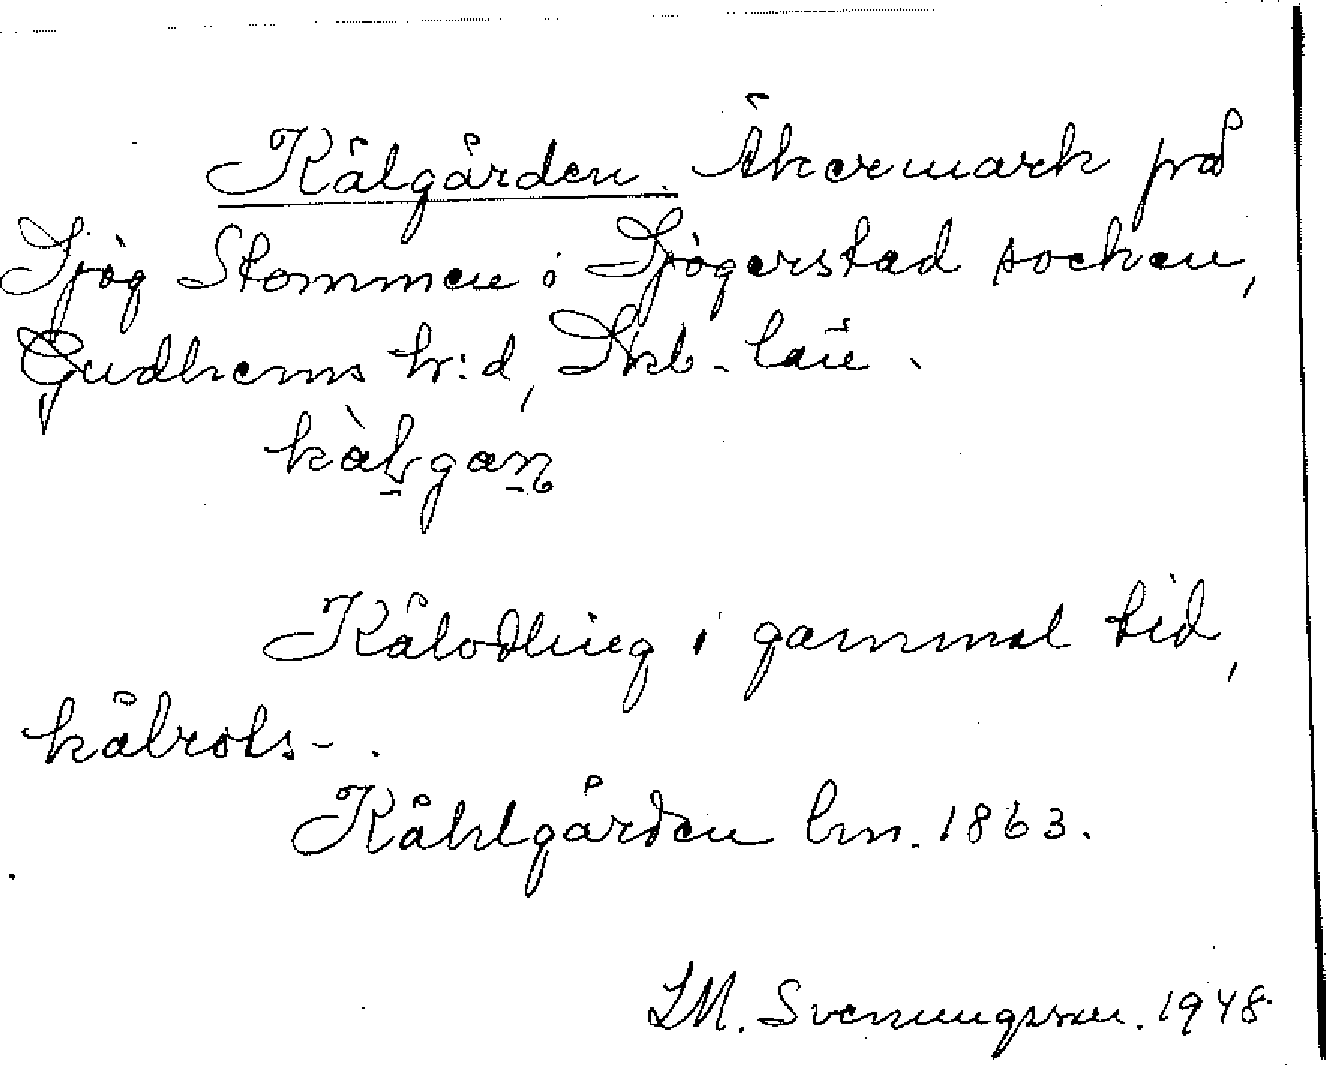 Kålgården. Åkermark på
Sjög Stommen i Sjögerstad socken,
Gudhems h:d, Skb. län.
kàlgan
Kålodling i gammal tid,
kålrots-.
Kåhlgården lm. 1863.
LM. Svenungsson. 1948.